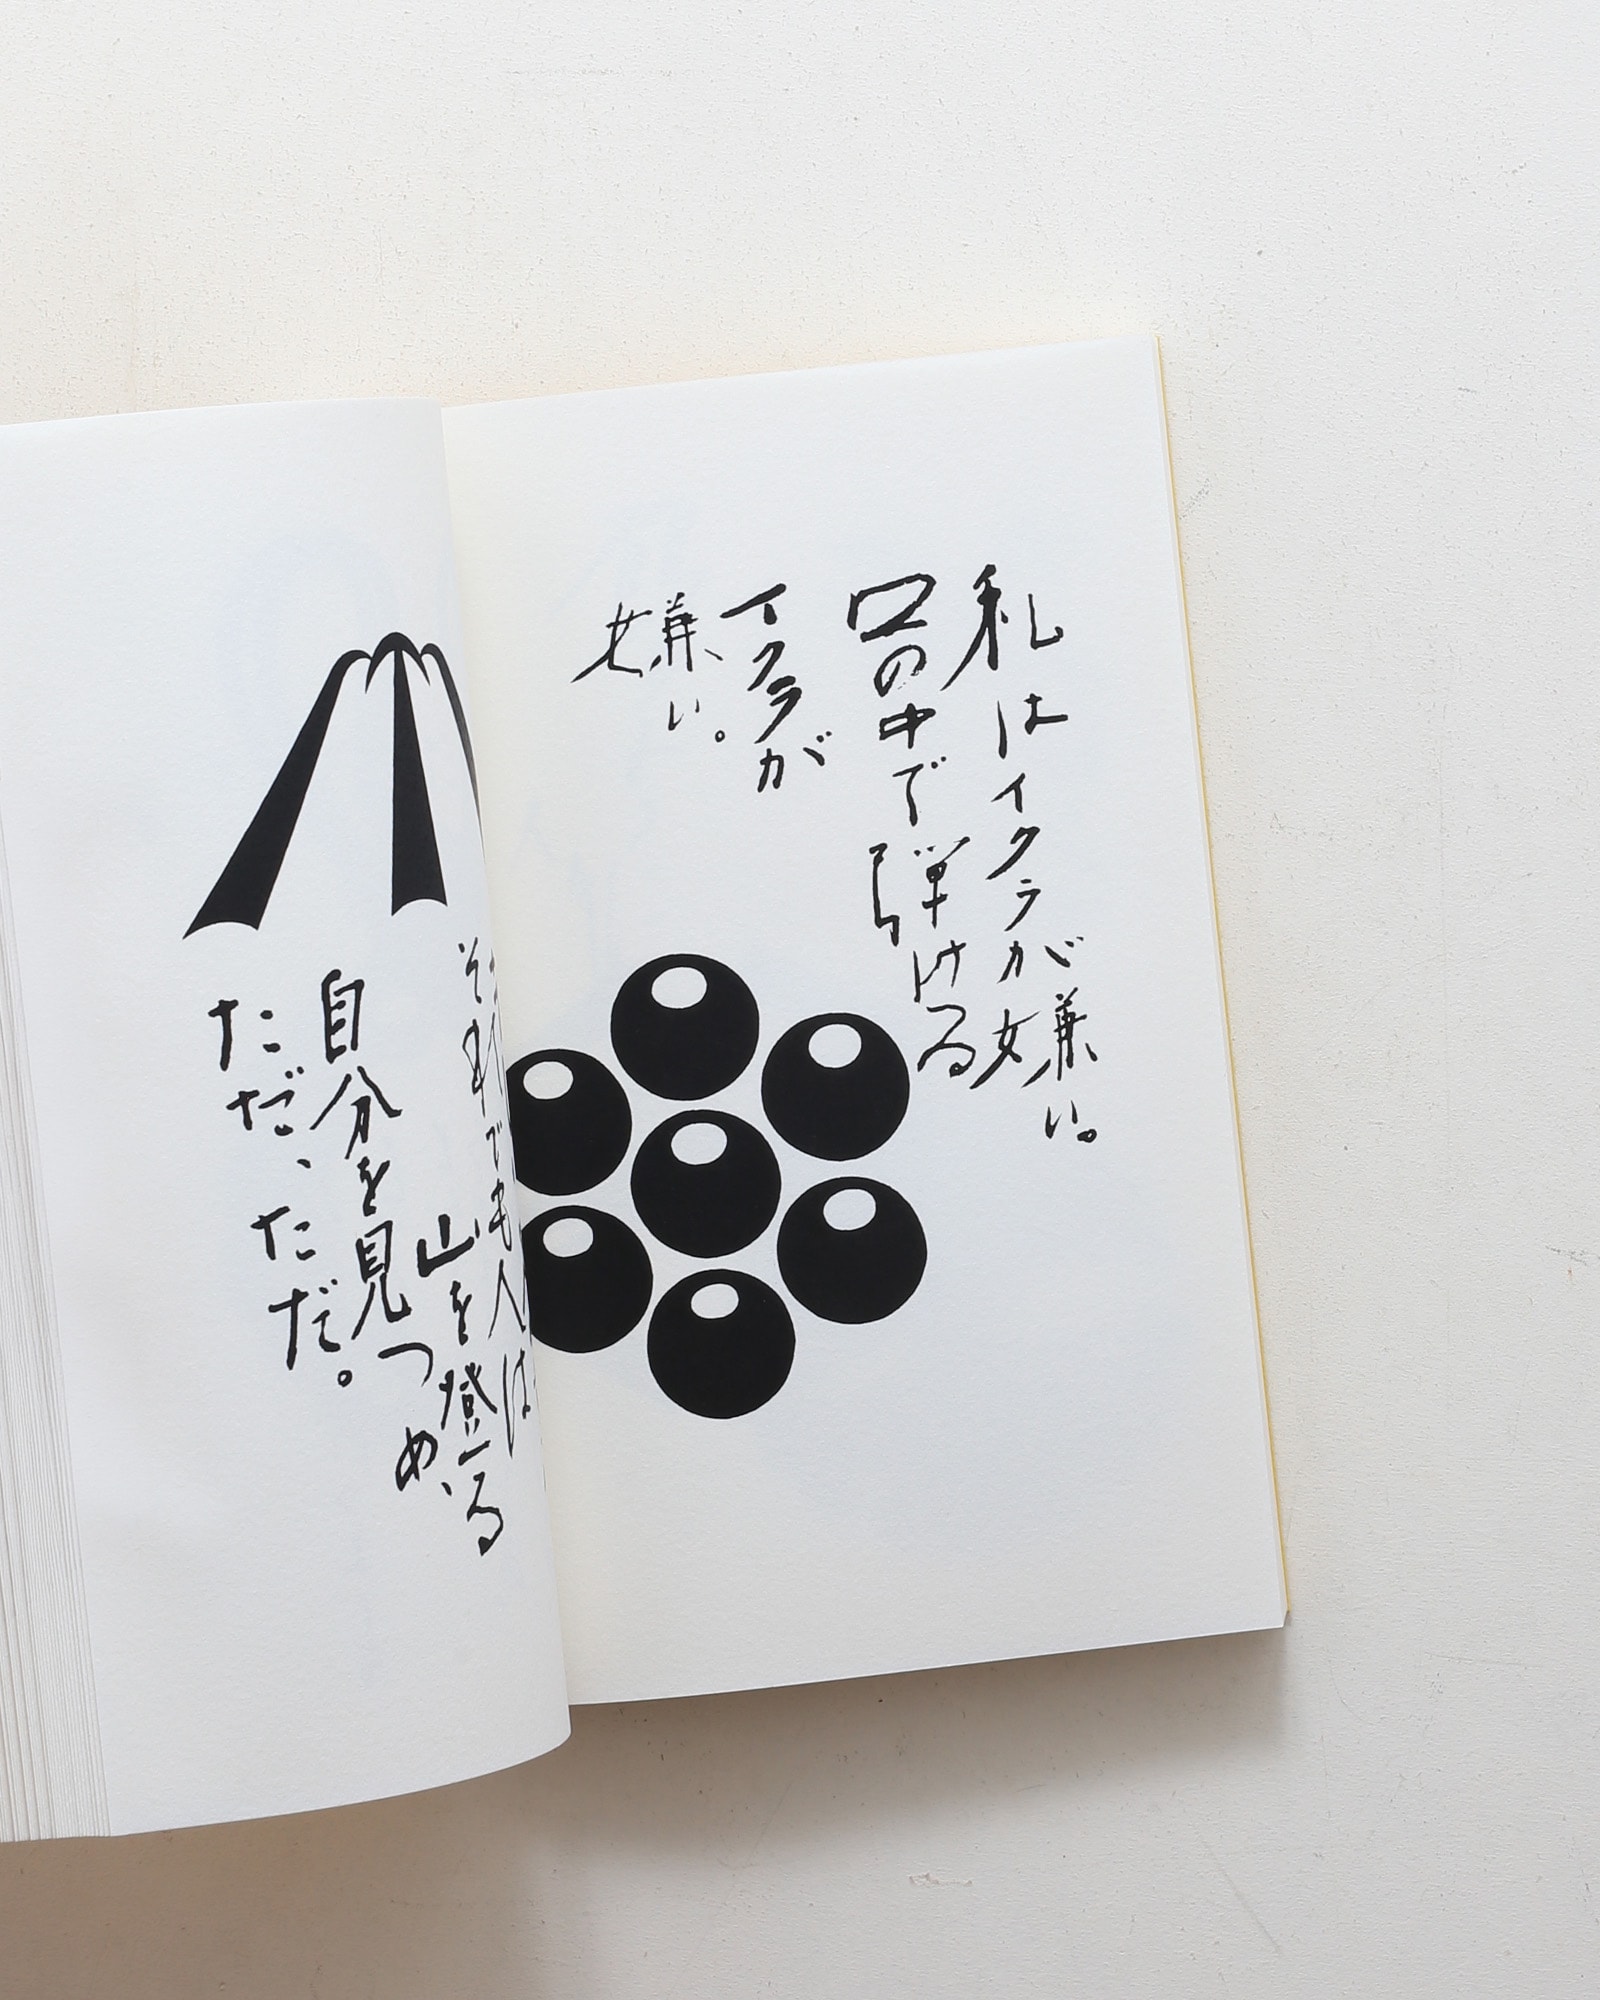 私はイクラが嫌い。
口の中で弾ける
イクラが
嫌い。
それでも人は
山を登る
自分を見つめ、
ただ、ただ。